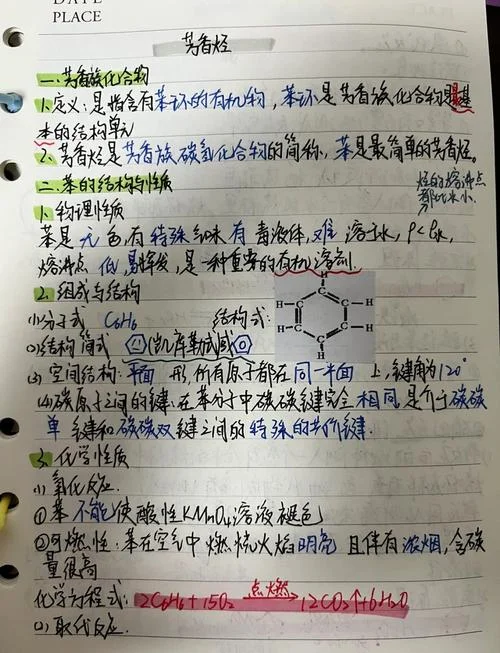 DATE
PLACE
芳香烃
一.芳香族化合物
1.定义:是指含有苯环的有机物,苯环是芳香族化合物最基
本的结构单元
2.芳香烃是芳香族碳氢化合物的简称,苯是最简单的芳香烃。
二.苯的结构与性质
烃的熔沸点
都比水小.
1.物理性质
苯是 无 色有特殊气味有 毒液体,难 溶于水,ρ<ρ水,
熔沸点 低,易挥发,是一种重要的有机溶剂
2.组成与结构
(1)分子式 C6H6 结构式:
H
H H
H H
H
(2)结构简式 (凯库勒式或)
(3)空间结构:平面 形,所有原子都在同一平面 上,键角为120°
(4)碳原子之间的键:在苯分子中碳碳键完全 相同,是介于碳碳
单 键和碳碳双 键之间的特殊的共价键.
3.化学性质
(1)氧化反应.
①苯不能使酸性KMnO4溶液褪色
②可燃性:苯在空气中燃烧火焰明亮 且伴有浓烟,含碳
量很高
化学方程式:2C6H6+15O2 点燃 12CO2↑+6H2O
(2)取代反应.